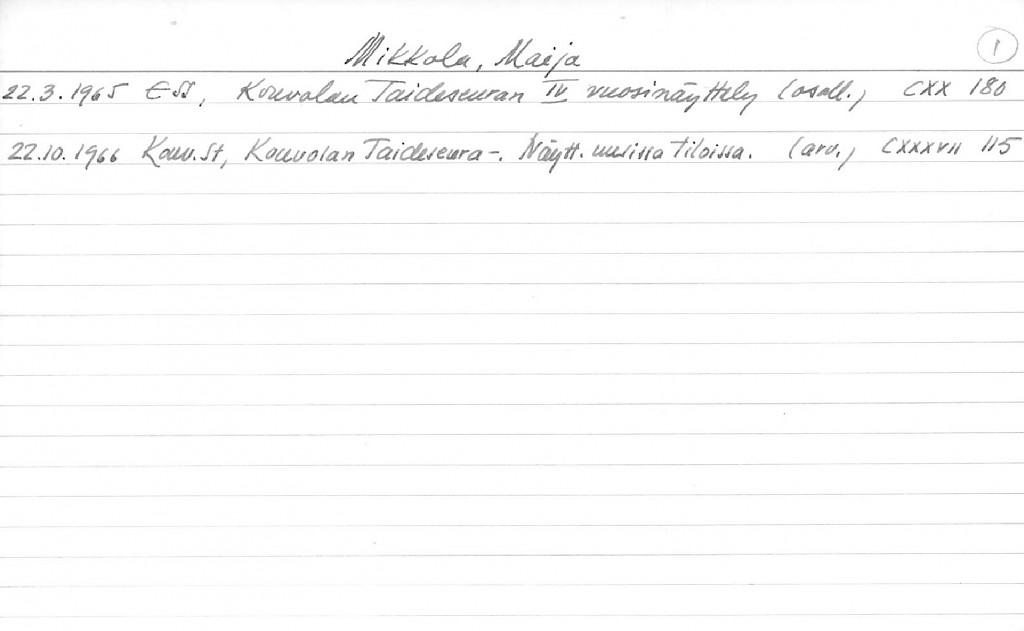 Mikkola, Maija 1
22.3.1965 ESS, Kouvolan Taideseuran IV vuosinäyttely (osall.) CXX 180
22.10.1966 Kouv.St, Kouvolan Taideseura-. Näytt. uusissa tiloissa. (arv.) CXXXVII 115